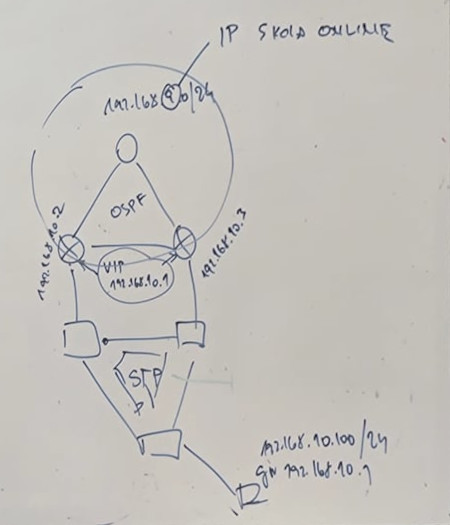 IP SKOLA ONLINE
192.168.0/24
OSPF
192.168.10.2
192.168.10.3
VIP
192.168.10.1
STP
192.168.10.100/24
GW 192.168.10.1